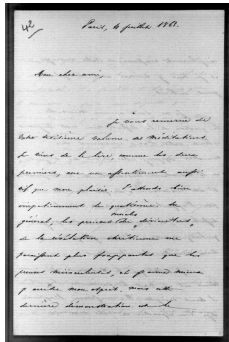 42
Paris, 4 juillet 1868.
Mon cher ami,
Je vous remercie de
votre troisième volume de Méditations.
Je viens de le lire comme les deux
premiers, avec un assentiment aussi
vif que mon plaisir. J'attends bien
impatiemment le quatrième. En
général, les preuves
de la révélation chrétienne me
paraissent plus frappantes que les
preuves miraculeuses, et j'aime mieux
y mon esprit, mais cette
dernière démonstration est le